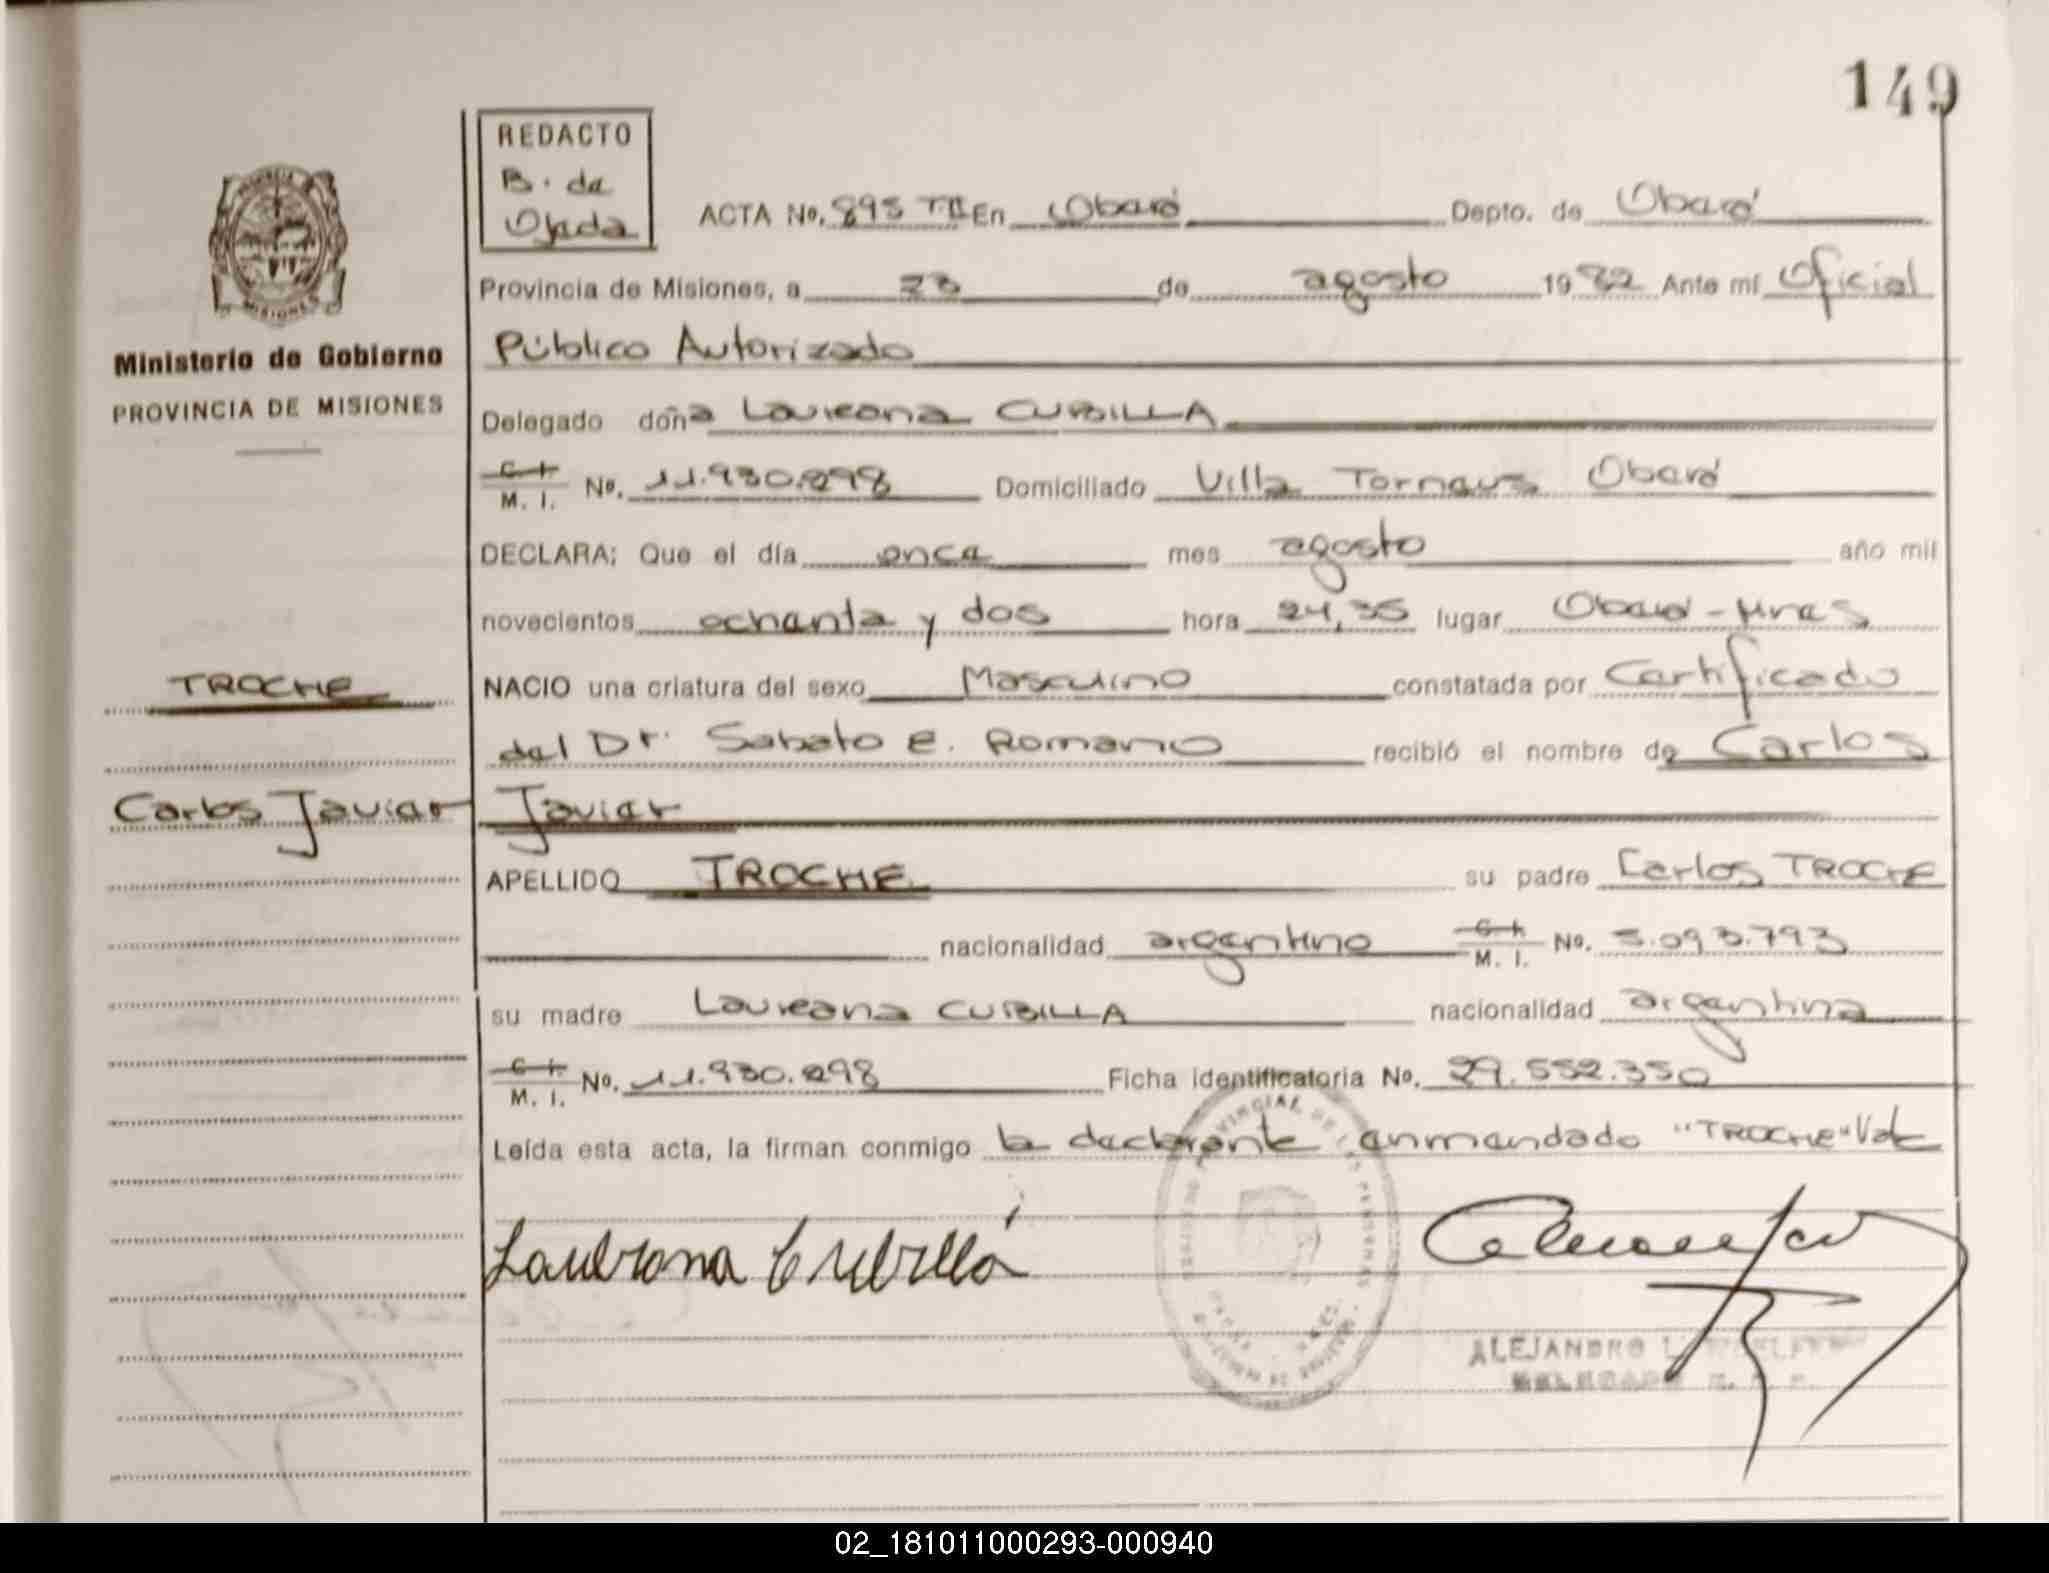 149
REDACTO
B. de
Ojeda
ACTA No. 895 TII En Oberá Depto. de Oberá
Provincia de Misiones, a 23 de agosto 1982 Ante mí Oficial
Ministerio de Gobierno
PROVINCIA DE MISIONES
Público Autorizado
Delegado doña Laureana CUBILLA
C. I.
M. I. No. 11.930.298 Domiciliado Villa Tornaus Oberá
DECLARA; Que el día once mes agosto año mil
novecientos ochenta y dos hora 24,35 lugar Oberá - Mnes
TROCHE
NACIO una criatura del sexo Masculino constatada por Certificado
del Dr. Sabato E. Romano recibió el nombre de Carlos
Carlos Javier
Javier
APELLIDO TROCHE su padre Carlos TROCHE
nacionalidad argentino C. I.
M. I. No. 5.093.793
su madre Laureana CUBILLA nacionalidad argentina
C. I.
M. I. No. 11.930.298 Ficha identificatoria No. 29.552.350
Leída esta acta, la firman conmigo la declarante enmendado "TROCHE" Vale
PROVINCIAL DE LAS PERSONAS
ALEJANDRO L.
DELEGADO
02_181011000293-000940